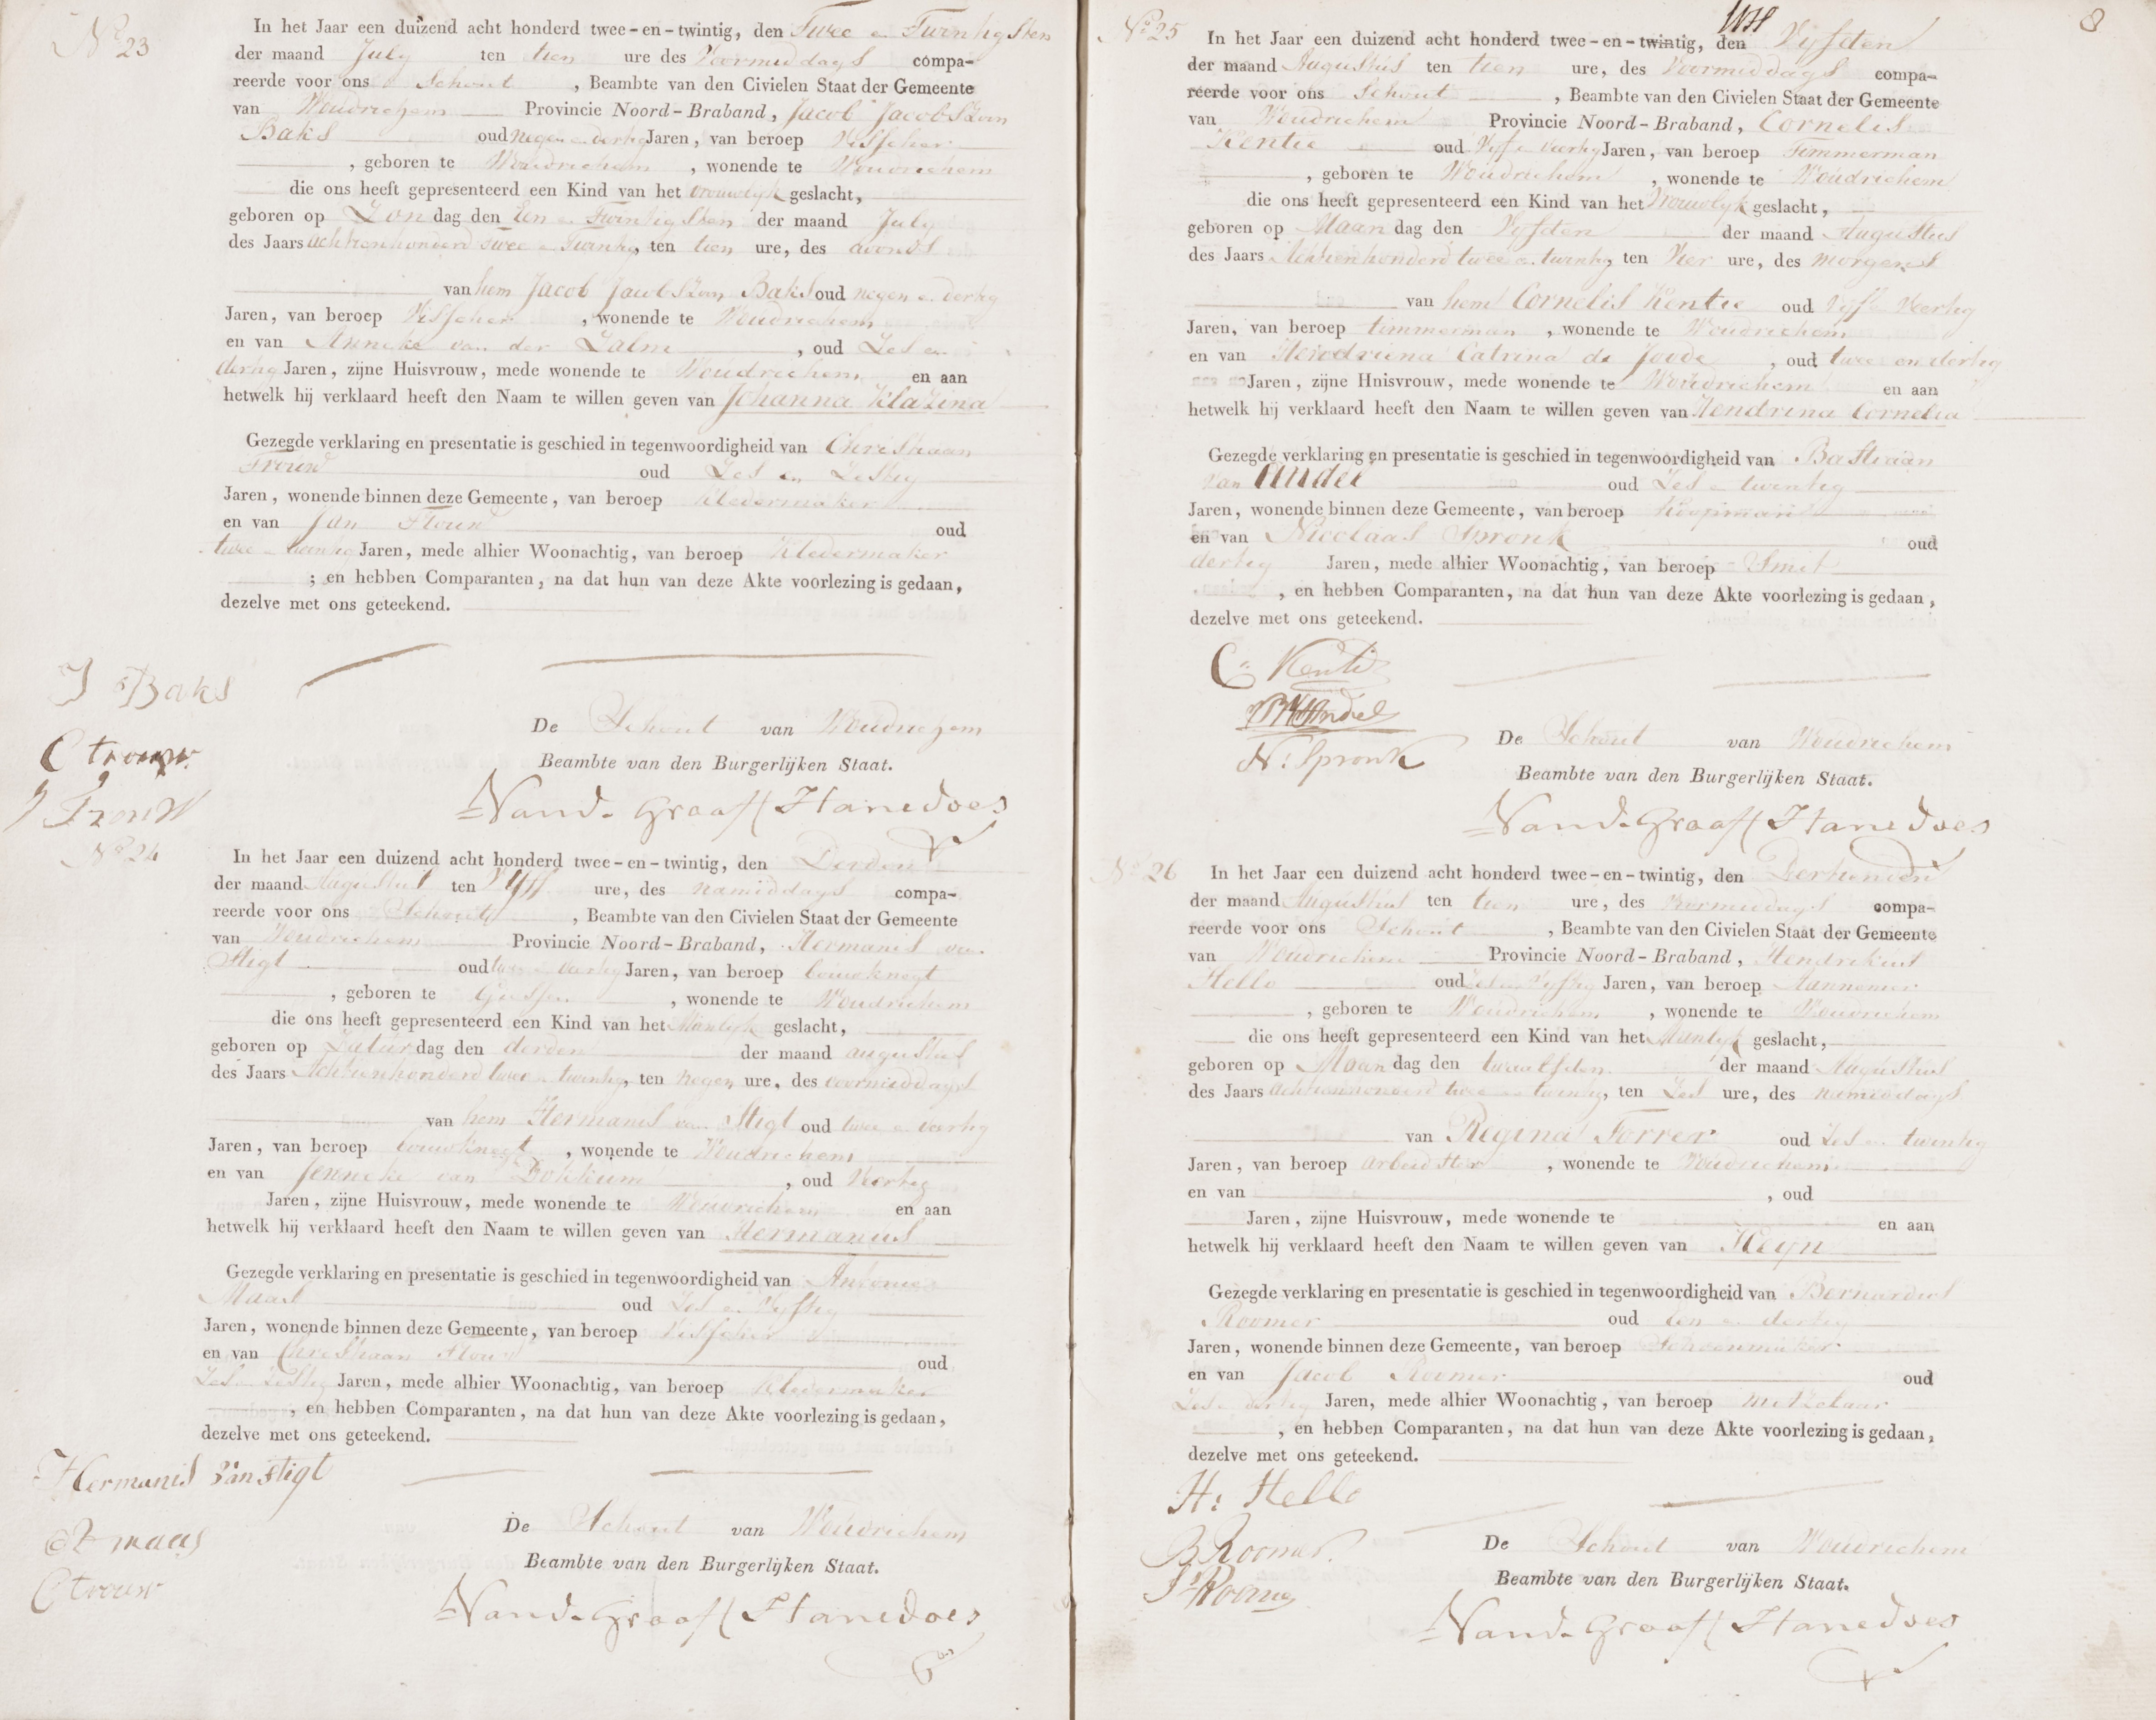 No 23
In het Jaar een duizend acht honderd twee-en-twintig, den Twee en Twintigsten
der maand July ten tien ure des Voormiddags compa-
reerde voor ons Schout, Beambte van den Civielen Staat der Gemeente
van Woudrichem Provincie Noord-Braband, Jacob Jacobszoon
Baks oud negen en dertig Jaren, van beroep Visscher
, geboren te Woudrichem, wonende te Woudrichem
die ons heeft gepresenteerd een Kind van het vrouwelyk geslacht,
geboren op Zondag den Een en Twintigsten der maand July
des Jaars achttienhonderd twee en Twintig, ten tien ure, des avonds
van hem Jacob Jacobszoon Baks oud negen en dertig
Jaren, van beroep Visscher, wonende te Woudrichem
en van Anneke van der Zalm, oud Zes en
dertig Jaren, zijne Huisvrouw, mede wonende te Woudrichem en aan
hetwelk hij verklaard heeft den Naam te willen geven van Johanna Klazina
Gezegde verklaring en presentatie is geschied in tegenwoordigheid van Christiaan
Trouw oud Zes en Zestig
Jaren, wonende binnen deze Gemeente, van beroep Kledermaker
en van Jan Trouw oud
twee en twintig Jaren, mede alhier Woonachtig, van beroep Kledermaker
; en hebben Comparanten, na dat hun van deze Akte voorlezing is gedaan,
dezelve met ons geteekend.
J Baks
C trouw
J Trouw
De Schout van Woudrichem
Beambte van den Burgerlijken Staat.
Vand. Graaff Hanedoes
No 24
In het Jaar een duizend acht honderd twee-en-twintig, den Derden
der maand Augustus ten Vyff ure, des namiddags compa-
reerde voor ons Schout, Beambte van den Civielen Staat der Gemeente
van Woudrichem Provincie Noord-Braband, Hermanis van
Stigt oud twee en veertig Jaren, van beroep bouwknegt
, geboren te, wonende te Woudrichem
die ons heeft gepresenteerd een Kind van het Manlyk geslacht,
geboren op Zaturdag den derden der maand augustus
des Jaars Achttienhonderd twee en twintig, ten negen ure, des voormiddags
van hem Hermanis van Stigt oud twee en veertig
Jaren, van beroep bouwknegt, wonende te Woudrichem
en van Jenneke van Dokkum, oud Veertig
Jaren, zijne Huisvrouw, mede wonende te Woudrichem en aan
hetwelk hij verklaard heeft den Naam te willen geven van Hermanus
Gezegde verklaring en presentatie is geschied in tegenwoordigheid van Antonie
Maas oud Zes en Vyftig
Jaren, wonende binnen deze Gemeente, van beroep Visscher
en van Christiaan Trouw oud
Zes en Zestig Jaren, mede alhier Woonachtig, van beroep Kledermaker
, en hebben Comparanten, na dat hun van deze Akte voorlezing is gedaan,
dezelve met ons geteekend.
Hermanis van Stigt
maas
C trouw
De Schout van Woudrichem
Beambte van den Burgerlijken Staat.
Vand. Graaff Hanedoes
8
No 25
In het Jaar een duizend acht honderd twee-en-twintig, den Vyfden
der maand Augustus ten tien ure, des Voormiddags compa-
reerde voor ons Schout, Beambte van den Civielen Staat der Gemeente
van Woudrichem Provincie Noord-Braband, Cornelis
Kentie oud Vyf en veertig Jaren, van beroep Timmerman
, geboren te Woudrichem, wonende te Woudrichem
die ons heeft gepresenteerd een Kind van het Vrouwelyk geslacht,
geboren op Maandag den Vyfden der maand Augustus
des Jaars Achttienhonderd twee en twintig, ten Vier ure, des morgens
van hem Cornelis Kentie oud Vyf en Veertig
Jaren, van beroep timmerman, wonende te Woudrichem
en van Hendriena Catrina de Joode, oud twee en dertig
Jaren, zijne Huisvrouw, mede wonende te Woudrichem en aan
hetwelk hij verklaard heeft den Naam te willen geven van Hendrina Cornelia
Gezegde verklaring en presentatie is geschied in tegenwoordigheid van Bastiaan
van Andel oud Zes en twintig
Jaren, wonende binnen deze Gemeente, van beroep Koopman
en van Nicolaas Spronk oud
dertig Jaren, mede alhier Woonachtig, van beroep Smit
, en hebben Comparanten, na dat hun van deze Akte voorlezing is gedaan,
dezelve met ons geteekend.
C: Kentie
Andel
N: Spronk
De Schout van Woudrichem
Beambte van den Burgerlijken Staat.
Vand. Graaff Hanedoes
No 26
In het Jaar een duizend acht honderd twee-en-twintig, den Dertienden
der maand Augustus ten tien ure, des Voormiddags compa-
reerde voor ons Schout, Beambte van den Civielen Staat der Gemeente
van Woudrichem Provincie Noord-Braband, Hendrikus
Hello oud Zes en Vyftig Jaren, van beroep Aannemer
, geboren te Woudrichem, wonende te Woudrichem
die ons heeft gepresenteerd een Kind van het Manlyk geslacht,
geboren op Maandag den twaalfden der maand Augustus
des Jaars achttienhonderd twee en twintig, ten Zes ure, des namiddags
van Regina Forrer oud Zes en twintig
Jaren, van beroep arbeidster, wonende te Woudrichem
en van, oud
Jaren, zijne Huisvrouw, mede wonende te en aan
hetwelk hij verklaard heeft den Naam te willen geven van Heyn
Gezegde verklaring en presentatie is geschied in tegenwoordigheid van Bernardus
Roomer oud Een en dertig
Jaren, wonende binnen deze Gemeente, van beroep Schoenmaker
en van Jacob Roomer oud
Zes en dertig Jaren, mede alhier Woonachtig, van beroep Metzelaar
, en hebben Comparanten, na dat hun van deze Akte voorlezing is gedaan,
dezelve met ons geteekend.
H: Hello
B Roomer
J: Roomer
De Schout van Woudrichem
Beambte van den Burgerlijken Staat.
Vand. Graaff Hanedoes